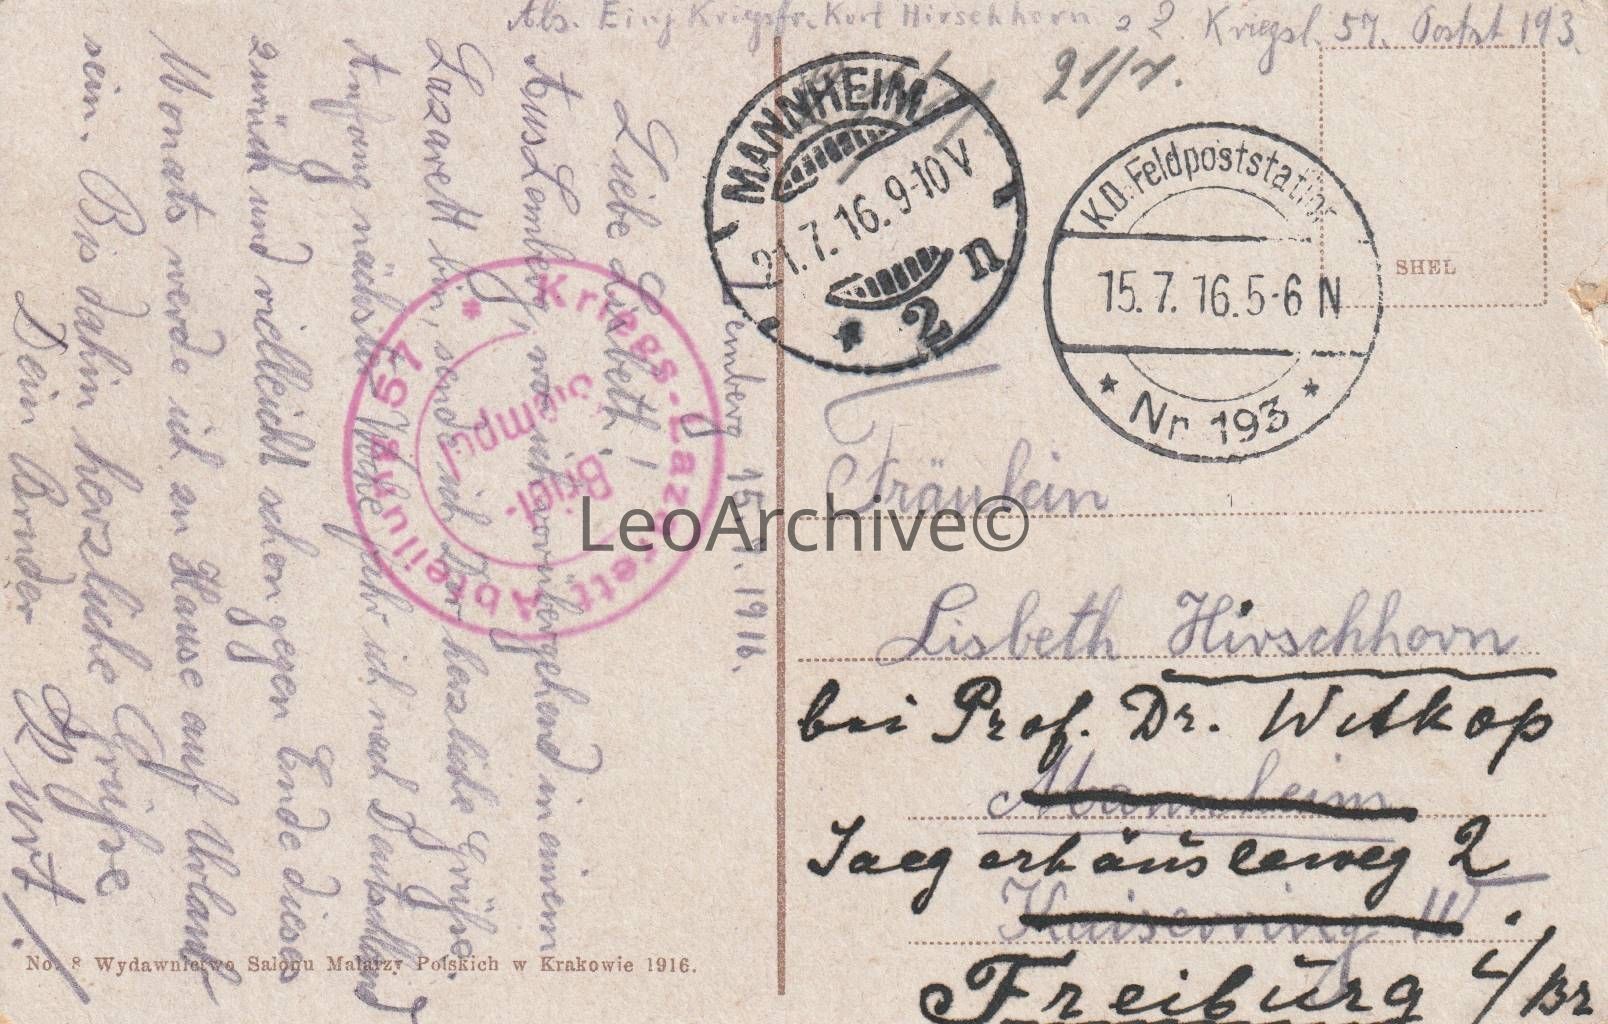 Abs. Einj. Kriegsfr. Kurt Hirschhorn z. Z. Kriegsl. 57. Postst 193.
21/7.
MANNHEIM
21.7.16.9-10V
* 2 n
K.D. Feldpoststation
15.7.16.5-6N
* Nr 193 *
SHEL
Lemberg 15.7.1916.
Liebe Lisbeth!
Aus Lemberg, wo ich vorübergehend in einem
Lazarett bin, sende ich Dir herzliche Grüße.
Anfang nächster Woche fahr ich nach Deutschland
zurück und vielleicht schon gegen Ende dieses
Monats werde ich zu Hause auf Urlaub
sein. Bis dahin herzliche Grüße
Dein Bruder Kurt!
* Kriegs-Lazarett-Abteilung 57
Brief-
stempel
Fräulein
Lisbeth Hirschhorn
bei Prof. Dr. Witkop
Mannheim
Jaegerhäusleweg 2
Kaiserring
Freiburg i/Br
No. 8 Wydawnictwo Salonu Malarzy Polskich w Krakowie 1916.
LeoArchive©